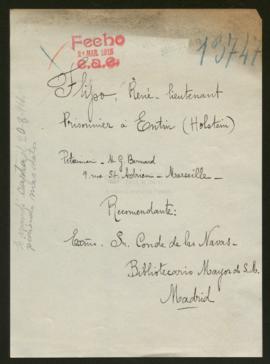 Fecho
MAR. 1918
e.a.e.
13747
Flipo, René - lieutenant
Prisonnier à Entin (Holstein)
M. G. Bernard
9 rue St. Adrien - Marseille -
Recomendante:
Exmo. Sr. Conde de las Navas -
Bibliotecario Mayor de S. M.
Madrid